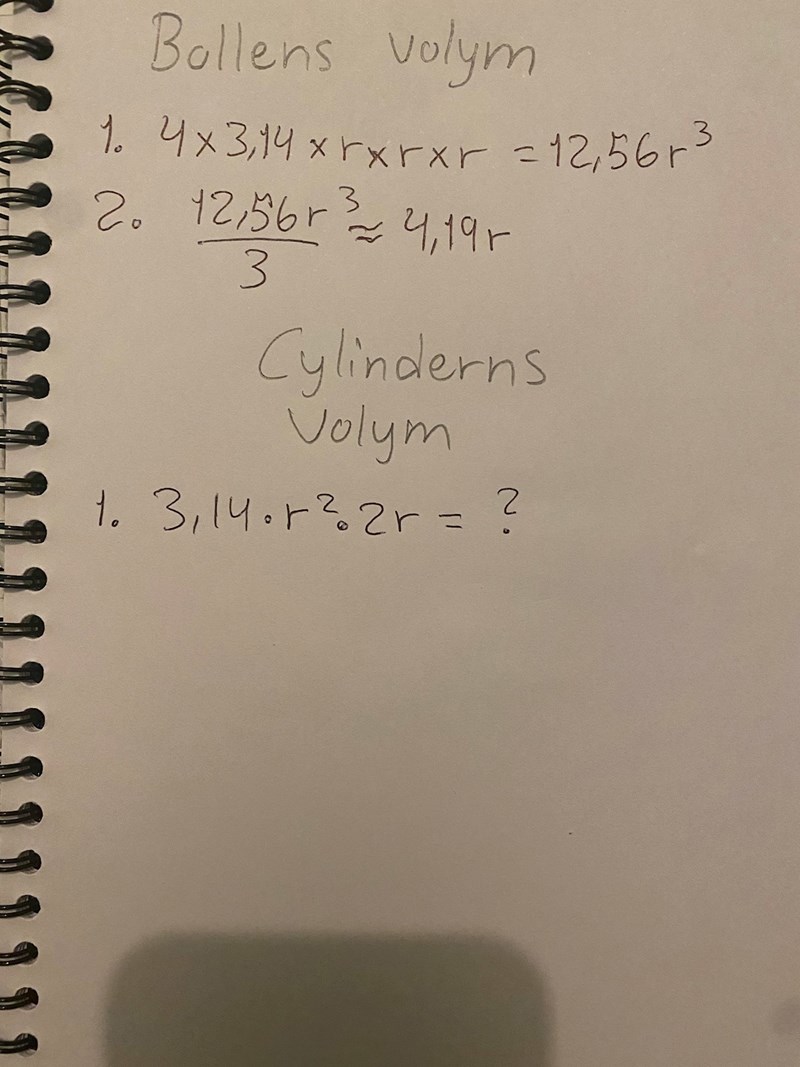 Bollens volym
1. 4×3,14×r×r×r = 12,56r³
2. 12,56r³/3 ≈ 4,19r
Cylinderns
Volym
1. 3,14·r²·2r = ?